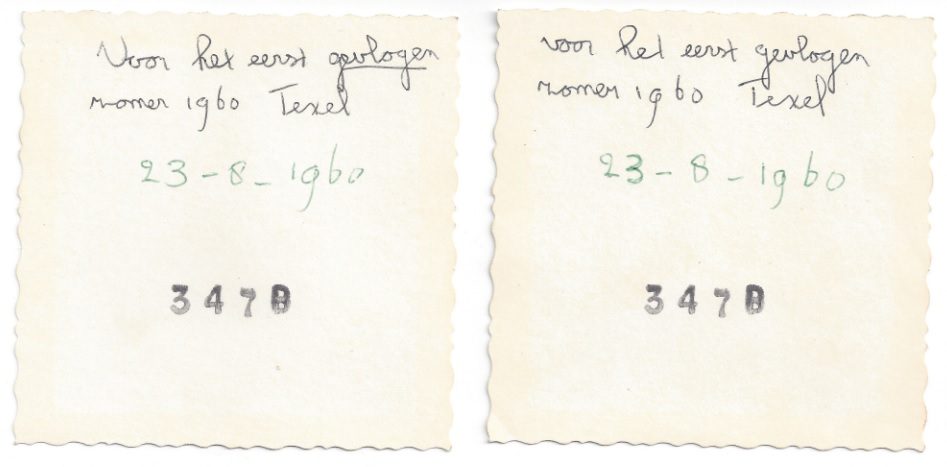 Voor het eerst gevlogen
zomer 1960 Texel
23-8-1960
voor het eerst gevlogen
zomer 1960 Texel
23-8-1960